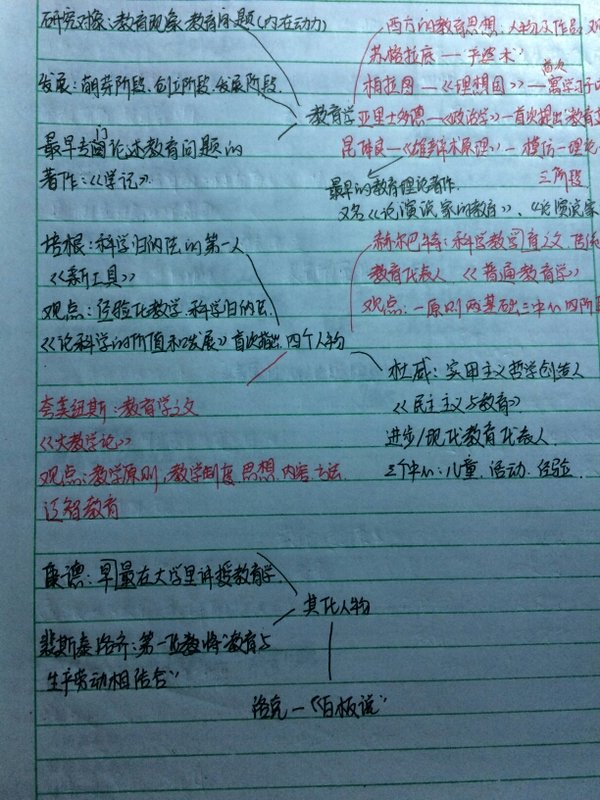 研究对象：教育现象.教育问题(内在动力)
发展：萌芽阶段.创立阶段.发展阶段.
最早专门论述教育问题的
著作：《学记》.
教育学
西方的教育思想.人物及作品.观
苏格拉底—"产婆术"
柏拉图—《理想国》—寓学习于
亚里士多德—《政治学》—首次提出"教育
昆体良—《雄辩术原理》—模仿—理论—
三阶段
最早的教育理论著作.
又名《论演说家的教育》、《论演说家
培根：科学归纳法的第一人
《新工具》
观点：经验化教学.科学归纳法.
《论科学的价值和发展》首次提出.
四个人物
赫尔巴特：科学教学育之父 传统
教育代表人 《普通教育学》
观点：一原则两基础三中心四阶段
杜威：实用主义哲学创造人
《民主主义与教育》
进步/现代教育代表人
三个中心：儿童.活动.经验.
夸美纽斯：教育学之父
《大教学论》
观点：教学原则，教学制度 思想 内容 方法.
泛智教育
康德：早最在大学里讲授教育学
其他人物
裴斯泰洛齐：第一 教将"教育与
生产劳动相结合"
洛克—"白板说"